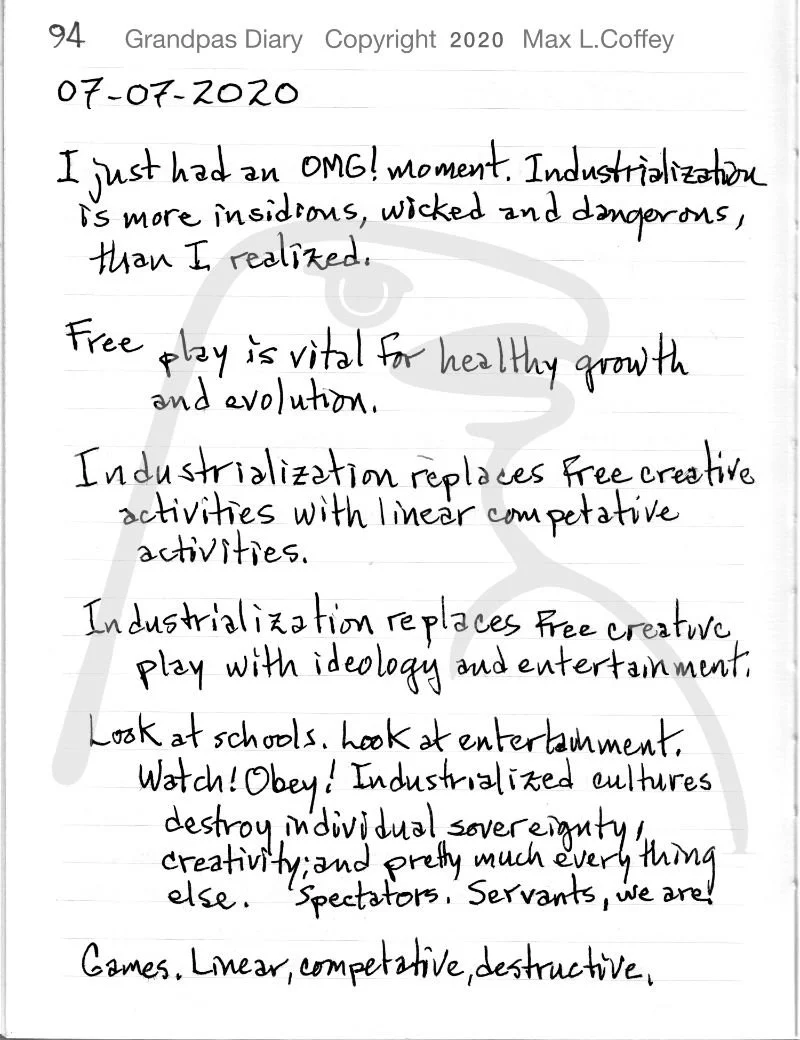 94 Grandpas Diary Copyright 2020 Max L.Coffey
07-07-2020
I just had an OMG! moment. Industrialization
is more insidious, wicked and dangerous,
than I realized.
Free play is vital for healthy growth
and evolution.
Industrialization replaces free creative
activities with linear competative
activities.
Industrialization replaces free creative
play with ideology and entertainment.
Look at schools. Look at entertainment.
Watch! Obey! Industrialized cultures
destroy individual sovereignty,
creativity; and pretty much every thing
else. Spectators. Servants, we are!
Games. Linear, competative, destructive.